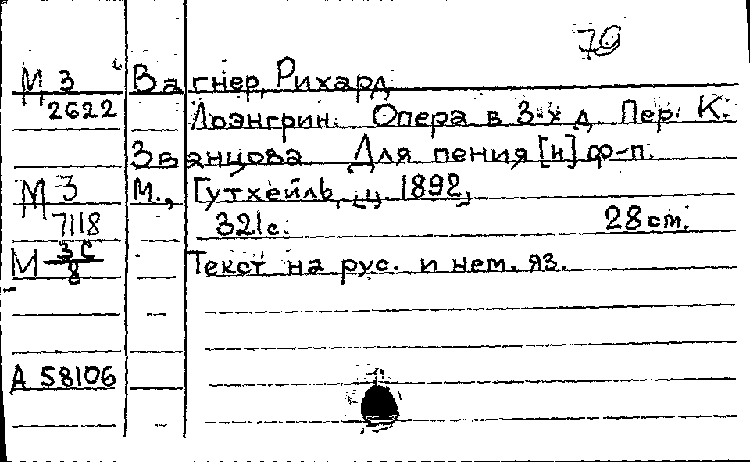 79
М 3 Вагнер, Рихард
2622 Лоэнгрин. Опера в 3-х д. Пер. К.
Званцова. Для пения [и] ф-п.
М 3 М., Гутхейль, ц. 1892,
7118 321с. 28 cm.
М 3С/8 Текст на рус. и нем. яз.
А 58106